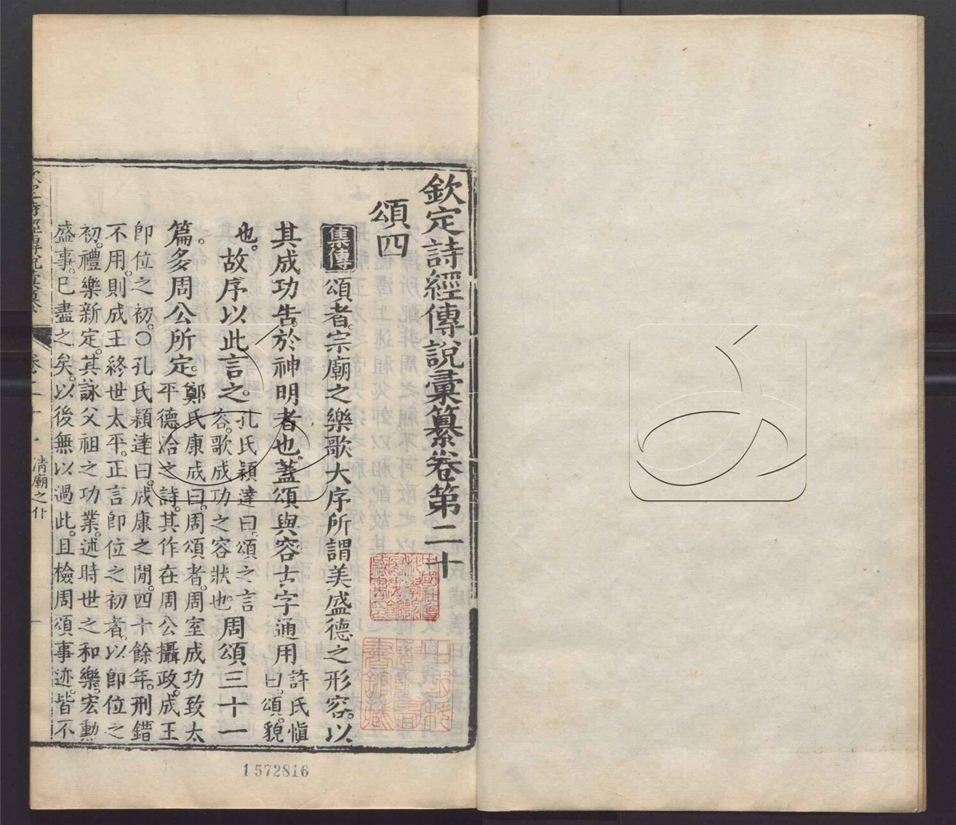 欽定詩經傳說彙纂卷第二十
頌四
集傳 頌者。宗廟之樂歌。大序所謂美盛德之形容。以
其成功告於神明者也。蓋頌與容古字通用
許氏慎
曰。頌。貌
也。故序以此言之。
孔氏穎達曰。頌之言
容。歌成功之容狀也。
周頌三十一
篇。多周公所定。
鄭氏康成曰。周頌者。周室成功致太
平德洽之詩。其作在周公攝政。成王
即位之初。〇孔氏穎達曰。成康之閒。四十餘年。刑錯
不用。則成王終世太平。正言即位之初者。以即位之
初。禮樂新定。其詠父祖之功業。述時世之和樂。宏勳
盛事。已盡之矣。以後無以過此。且檢周頌事迹。皆不
清廟之什
1572816